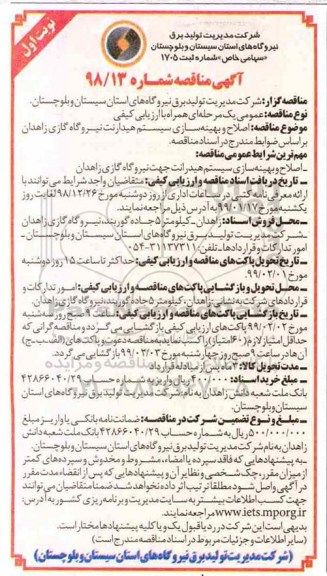 نوبت اول
شرکت مدیریت تولید برق
نیروگاه های استان سیستان و بلوچستان
«سهامی خاص» شماره ثبت ۱۷۰۵
آگهی مناقصه شماره ۹۸/۱۳
مناقصه گزار: شرکت مدیریت تولید برق نیروگاه های استان سیستان و بلوچستان.
نوع مناقصه: عمومی یک مرحله ای همراه با ارزیابی کیفی
موضوع مناقصه: اصلاح و بهینه سازی سیستم هیدرانت نیروگاه گازی زاهدان
بر اساس ضوابط مندرج در اسناد مناقصه.
مهم ترین شرایط عمومی مناقصه:
ـ اصلاح و بهینه سازی سیستم هیدرانت جهت نیروگاه گازی زاهدان
ـ تاریخ دریافت اسناد مناقصه و ارزیابی کیفی: متقاضیان واجد شرایط می توانند با
ارائه معرفی نامه کتبی در ساعات اداری از روز دوشنبه مورخ ۹۸/۱۲/۲۶ لغایت روز
یکشنبه مورخ ۹۹/۰۱/۱۷ به آدرس ذیل مراجعه نمایند.
ـ محل فروش اسناد: زاهدان ـ کیلومتر ۵ جاده گوربند، نیروگاه گازی زاهدان
ـ شرکت مدیریت تولید برق نیروگاه های استان سیستان و بلوچستان ـ
امور تدارکات و قراردادها ـ تلفن: ۳۱۱۳۷۳۱۱-۰۵۴
ـ تاریخ تحویل پاکت های مناقصه و ارزیابی کیفی: حداکثر تا ساعت ۱۵ روز دوشنبه
مورخ ۹۹/۰۲/۰۱.
ـ محل تحویل و بازگشایی پاکت های مناقصه و ارزیابی کیفی: امور تدارکات و
قراردادهای شرکت به نشانی: زاهدان، کیلومتر ۵ جاده گوربند، نیروگاه گازی زاهدان.
ـ تاریخ بازگشایی پاکت های مناقصه و ارزیابی کیفی: ساعت ۹ صبح روز سه شنبه
مورخ ۹۹/۰۲/۰۲ پاکت های ارزیابی کیفی بازگشایی می گردد و مناقصه گرانی که
حداقل امتیاز لازم (۶۰ امتیاز) را کسب نمایند به مناقصه دعوت و پاکت های (الف ـ ب ـ ج)
آن ها در ساعت ۹ صبح روز چهارشنبه مورخ ۹۹/۰۲/۰۳ بازگشایی می گردد.
ـ مدت تحویل کالا: ۳ ماه از زمان مبادله قرارداد
ـ مبلغ خرید اسناد: ریال واریز به شماره حساب ۴۲۸۶۶۰۴۰/۲۹
بانک ملت شعبه دانش زاهدان به نام شرکت مدیریت تولید برق نیروگاه های استان
سیستان و بلوچستان.
ـ مبلغ و نوع تضمین شرکت در مناقصه: ضمانت نامه بانکی یا واریز مبلغ
۵۰۰/۰۰۰/۰۰۰ ریال به شماره حساب ۴۲۸۶۶۰۴۰/۲۹ بانک ملت شعبه دانش
زاهدان به نام شرکت مدیریت تولید برق نیروگاه های استان سیستان و بلوچستان.
ـ به پیشنهادهایی که فاقد سپرده یا امضاء، مشروط و مخدوش و سپرده های کمتر
از میزان مقرر، چک شخصی و نظایر آن و پیشنهادهایی که پس از انقضاء مدت مقرر
در آگهی واصل شود مطلقا ترتیب اثر داده نخواهد شد. ضمنا متقاضیان می توانند
جهت کسب اطلاعات بیشتر به سایت مدیریت و برنامه ریزی کشور به آدرس:
www.iets.mporg.ir مراجعه نمایند.
بدیهی است این شرکت در رد یا قبول یک و یا کلیه پیشنهادها مختار است.
(سایر اطلاعات و جزئیات مربوط در اسناد مناقصه مندرج است)
(شرکت مدیریت تولید برق نیروگاه های استان سیستان و بلوچستان)